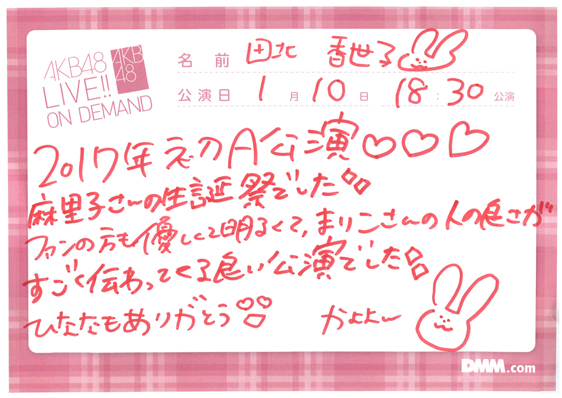 AKB48
LIVE!!
ON DEMAND
AKB
48
名前 田北 香世子
公演日 1月10日 18:30公演
2017年初A公演♡♡♡
麻里子さんの生誕祭でした
ファンの方も優しくて明るくて、まりこさんの人の良さが
すごく伝わってくる良い公演でした
ひななもありがとう
かよよん
DMM.com